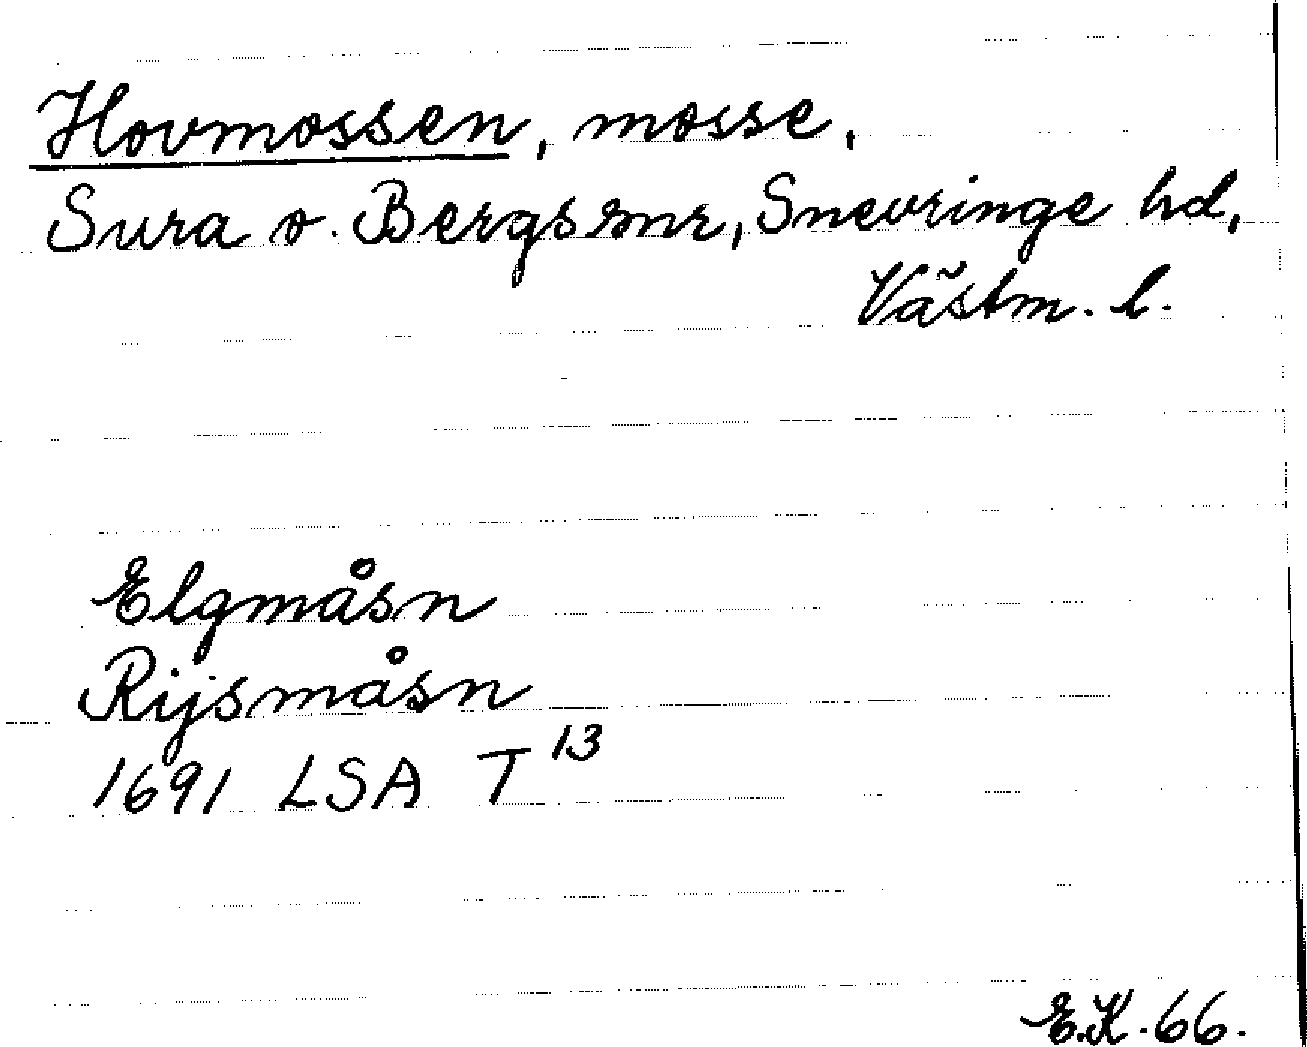 Hovmossen, mosse,
Sura o. Bergs snr, Snevringe hd,
Västm. l.
Elgmåsn
Rijsmåsn
1691 LSA T 13
E.K. 66.